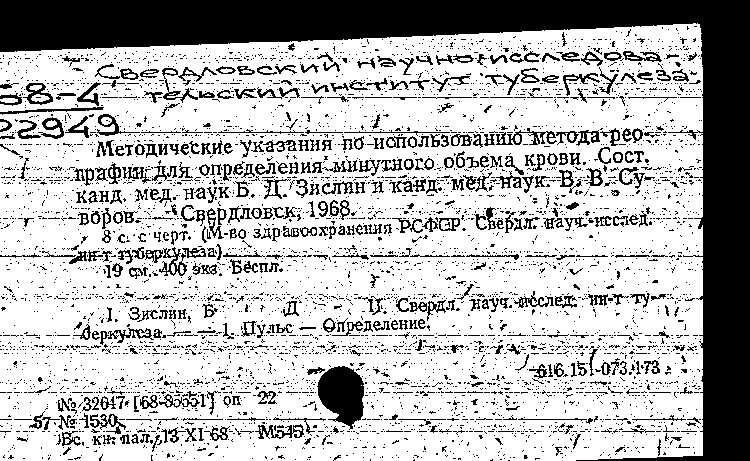 Свердловский научно-исследова-
тельский институт туберкулеза.
68-4
22949
Методические указания по использованию метода рео-
графии для определения минутного объема крови. Сост.
канд. мед. наук Б. Д. Зислин и канд. мед. наук. В. В. Су-
воров. Свердловск, 1968.
8 с. с черт. (М-во здравоохранения РСФСР. Свердл. науч.-исслед.
ин-т туберкулеза)
19 см. 400 экз. Беспл.
I. Зислин, Б Д II. Свердл. науч.-исслед. ин-т ту-
беркулеза. — — 1. Пульс — Определение.
616.151-073.173
№ 32047 оп 22
57 № 1530
Вс. кн. пал. 13 XI 68 М545